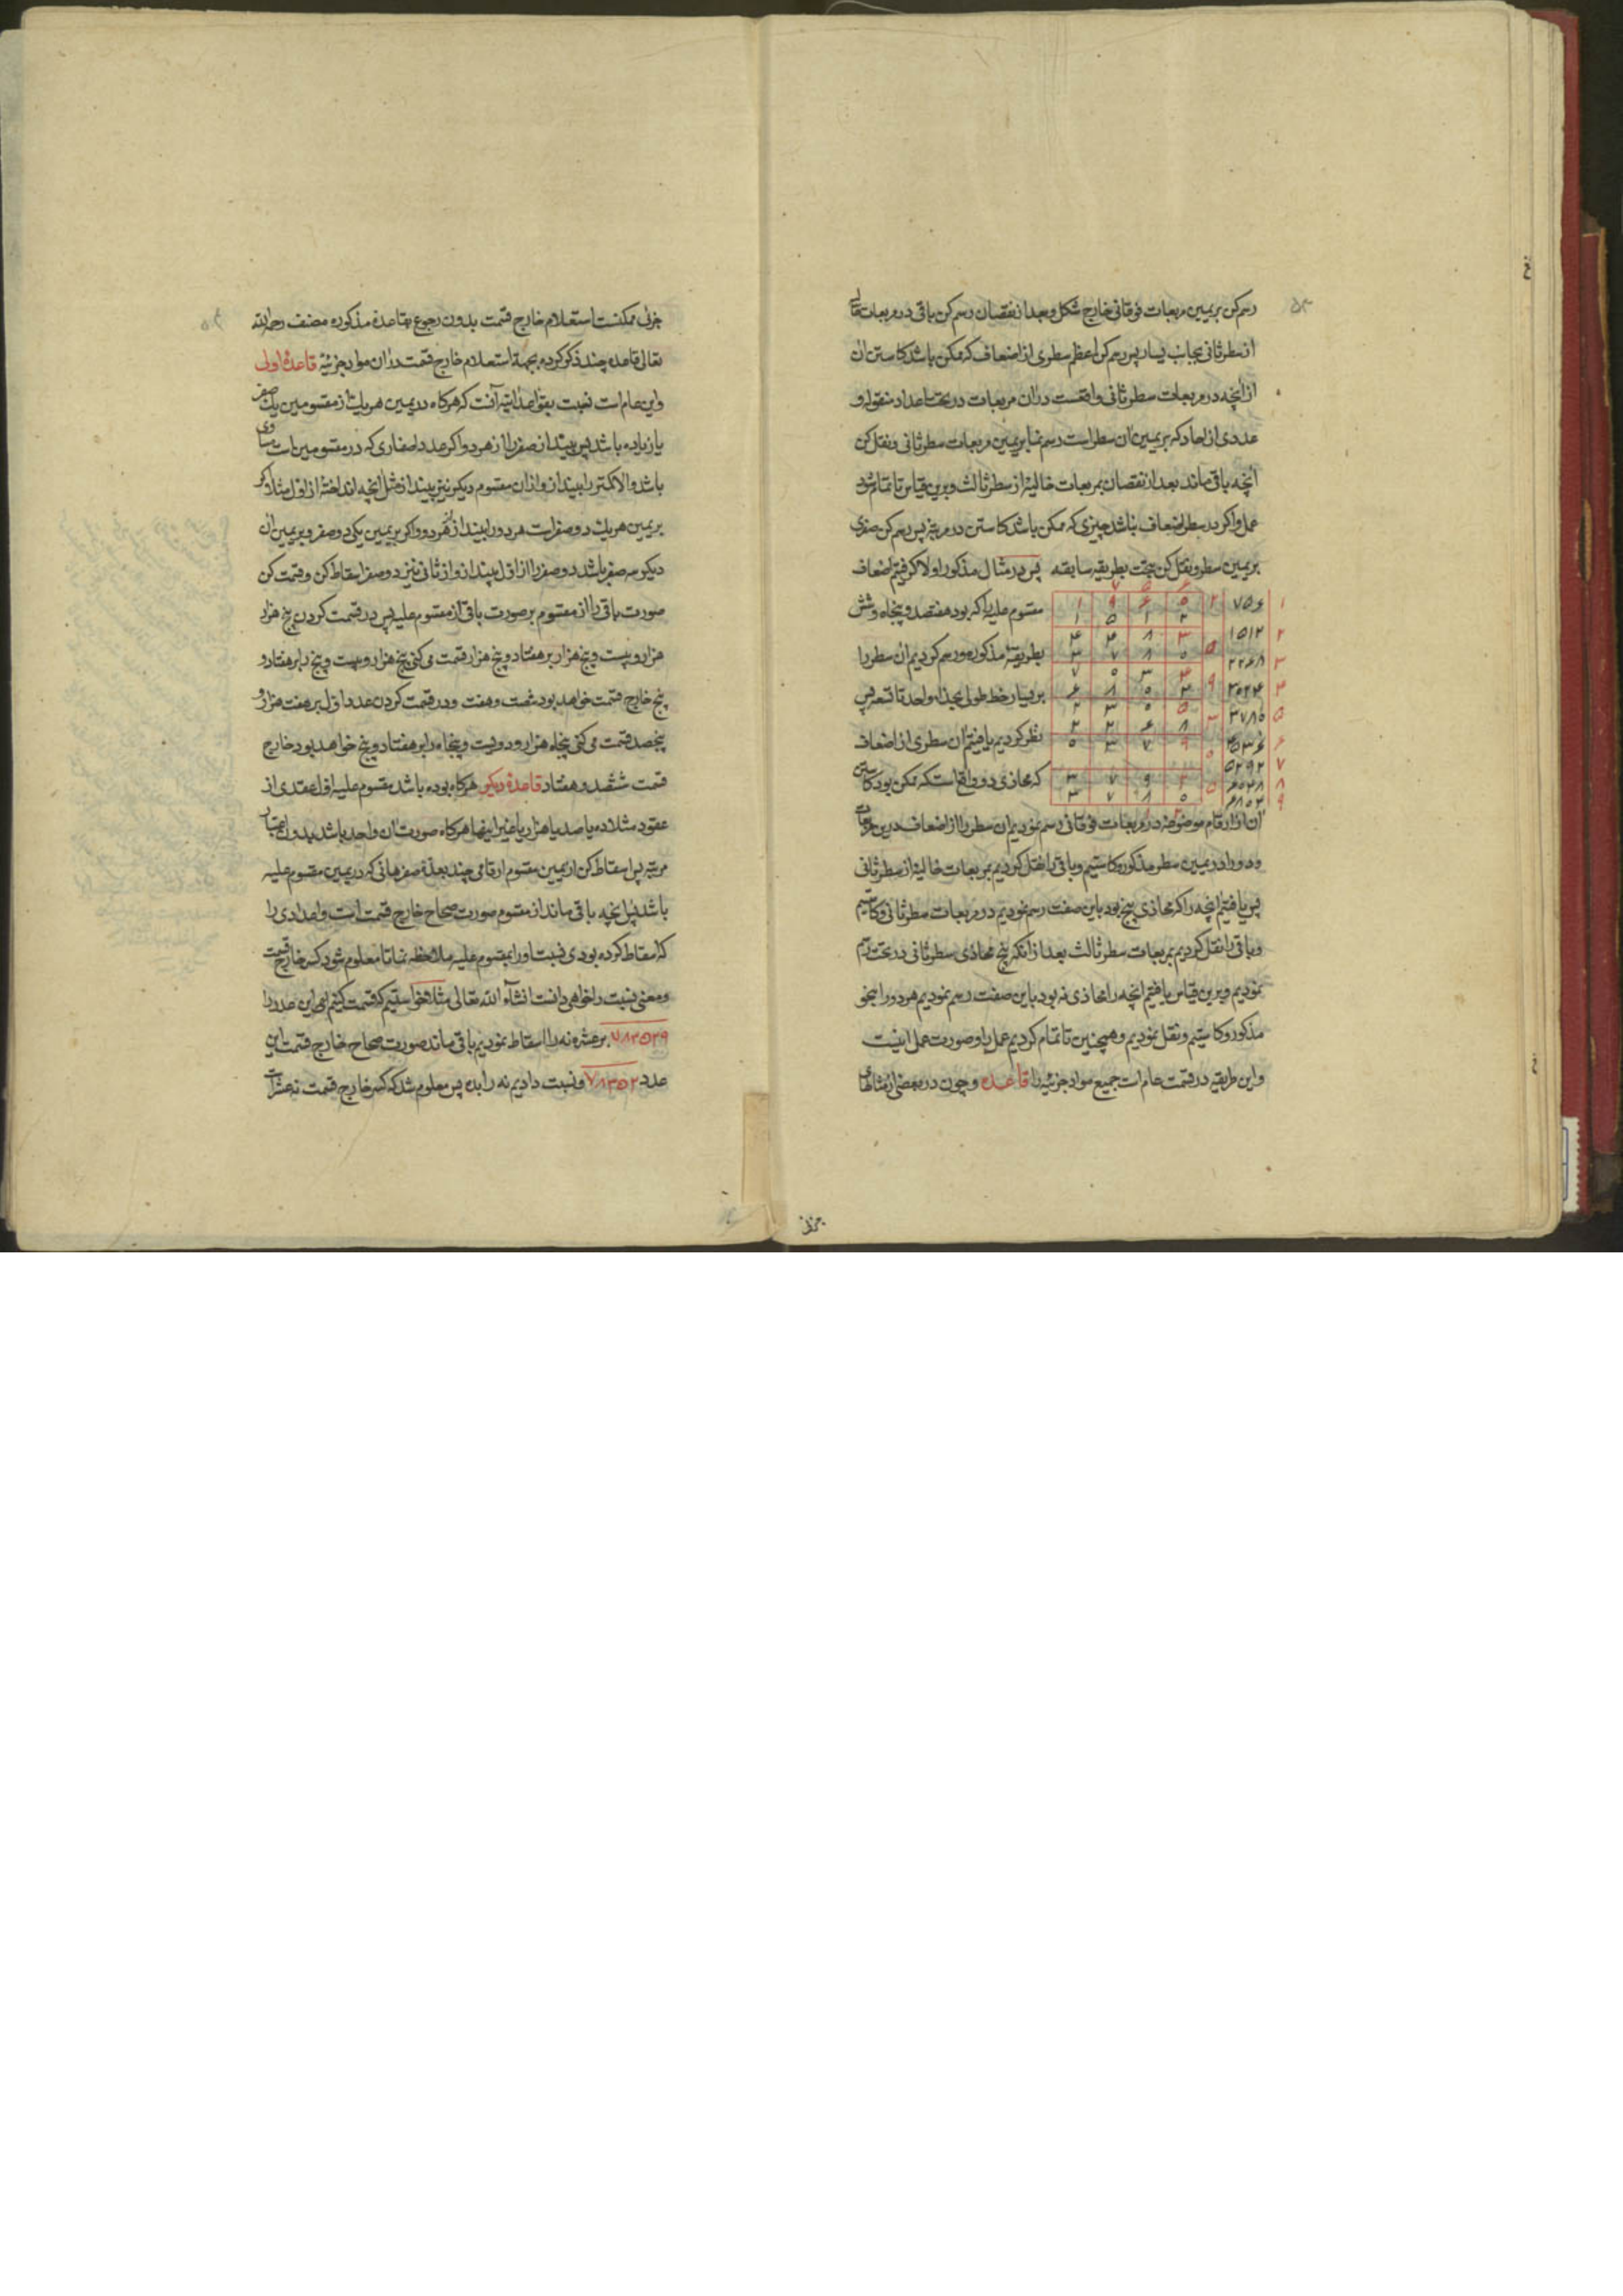 رسم کن بر یمین مربعات فوقانی خارج شکل و بعد از نقصان رسم کن باقی در مربعات خالیه
از سطر ثانی بجانب یسار پس رسم کن اعظم سطری از اضعاف که ممکن باشد کاستن آن
از آنچه در مربعات سطر ثانی واقعست در آن مربعات در تحت اعداد منقوله و
عددی از احاد که بر یمین آن سطر است رسم نما بر یمین مربعات سطر ثانی و نقل کن
آنچه باقی ماند بعد از نقصان بمربعات خالیه از سطر ثالث و برین قیاس تا تمام شود
عمل و اگر در سطر اضعاف نباشد چیزی که ممکن باشد کاستن در مرتبه پس رسم کن صفری
بر یمین سطر و نقل کن بتحت بطریقه سابقه پس در مثال مذکور اولا گرفتیم اضعاف
مقسوم علیه را که بود هفتصد و پنجاه و شش
بطریقهٔ مذکوره و رسم کردیم آن سطر را
بر یسار خط طولی بحذاء واحد تا تسعه پس
نظر کردیم یافتیم آن سطری از اضعاف
که محاذی دو واقع است که ممکن بود کاستن
۱ ۷۵۶
۲ ۱۵۱۲
۳ ۲۲۶۸
۴ ۳۰۲۴
۵ ۳۷۸۰
۶ ۴۵۳۶
۷ ۵۲۹۲
۸ ۶۰۴۸
۹ ۶۸۰۴
آن از ارقام موضوعه در مربعات فوقانی رسم نمودیم آن سطر را از اضعاف درین مربعات
و دو را در یمین سطر مذکور و کاستیم و باقی را نقل کردیم بمربعات خالیه از سطر ثانی
پس یافتیم آنچه را که محاذی پنج بود باین صفت رسم نمودیم در مربعات سطر ثانی و کاستیم
و باقی را نقل کردیم بمربعات سطر ثالث بعد از آنکه پنج محاذی سطر ثانی در تحت رسم
نمودیم و برین قیاس یافتیم آنچه را محاذی نه بود باین صفت رسم نمودیم هر دو را بنحو
مذکور و کاستیم و نقل نمودیم و همچنین تا تمام کردیم عمل را و صورت عمل اینست
و این طریقه در قسمت عام است جمیع مواد جزئیه را قاعده و چون در بعضی از مثالهای
جزئی
جزئی ممکنست استعلام خارج قسمت بدون رجوع بقاعدهٔ مذکوره مصنف رحمه الله
تعالی قاعده چند ذکر کرده بجهة استعلام خارج قسمت در آن مواد جزئیه قاعدهٔ اولی
و این عام است نسبت بقواعد آتیه آنست که هرگاه در یمین هر یک از مقسومین یک صفر
یا زیاده باشد پس بینداز صفر را از هر دو اگر عدد اصفاری که در مقسومین است مساوی
باشد و الا کمتر را بینداز و از آن مقسوم دیگر نیز بینداز مثل آنچه انداختهٔ از اول مثلا اگر
بر یمین هر یک دو صفر است هر دو را بینداز از هر دو و اگر بر یمین یکی دو صفر و بر یمین آن
دیگر سه صفر باشد دو صفر را از اول بینداز و از ثانی نیز دو صفر اسقاط کن و قسمت کن
صورت باقی را از مقسوم بر صورت باقی از مقسوم علیه پس در قسمت کردن پنج هزار
هزار و بیست و پنج هزار بر هفتاد و پنج هزار قسمت می کنی پنج هزار و بیست و پنج را بر هفتاد و
پنج خارج قسمت خواهد بود شصت و هفت و در قسمت کردن عدد اول بر هفت هزار و
پنجصد قسمت می کنی پنجاه هزار و دویست و پنجاه را بر هفتاد و پنج خواهد بود خارج
قسمت ششصد و هفتاد قاعدهٔ دیگر هرگاه بوده باشد مقسوم علیه اول عقدی از
عقود مثلا ده یا صد یا هزار یا غیر اینها هرگاه صورت آن واحد باشد بدون اعتبار
مرتبه پس اسقاط کن از یمین مقسوم ارقامی چند بعدهٔ صفرهائی که در یمین مقسوم علیه
باشد پس آنچه باقی ماند از مقسوم صورت صحاح خارج قسمت است و اعدادی را
که اسقاط کرده بودی نسبت او را بمقسوم علیه ملاحظه نما تا معلوم شود کسر خارج قسمت
و معنی نسبت را خواهی دانست انشاء الله تعالی مثلا خواستیم که قسمت کنیم این عدد را
۷۸۳۵۲۹ بر عشره نه را اسقاط نمودیم باقی ماند صورت صحاح خارج قسمت این
عدد ۷۸۳۵۲ و نسبت دادیم نه را بده پس معلوم شد که کسر خارج قسمت نه عشر است